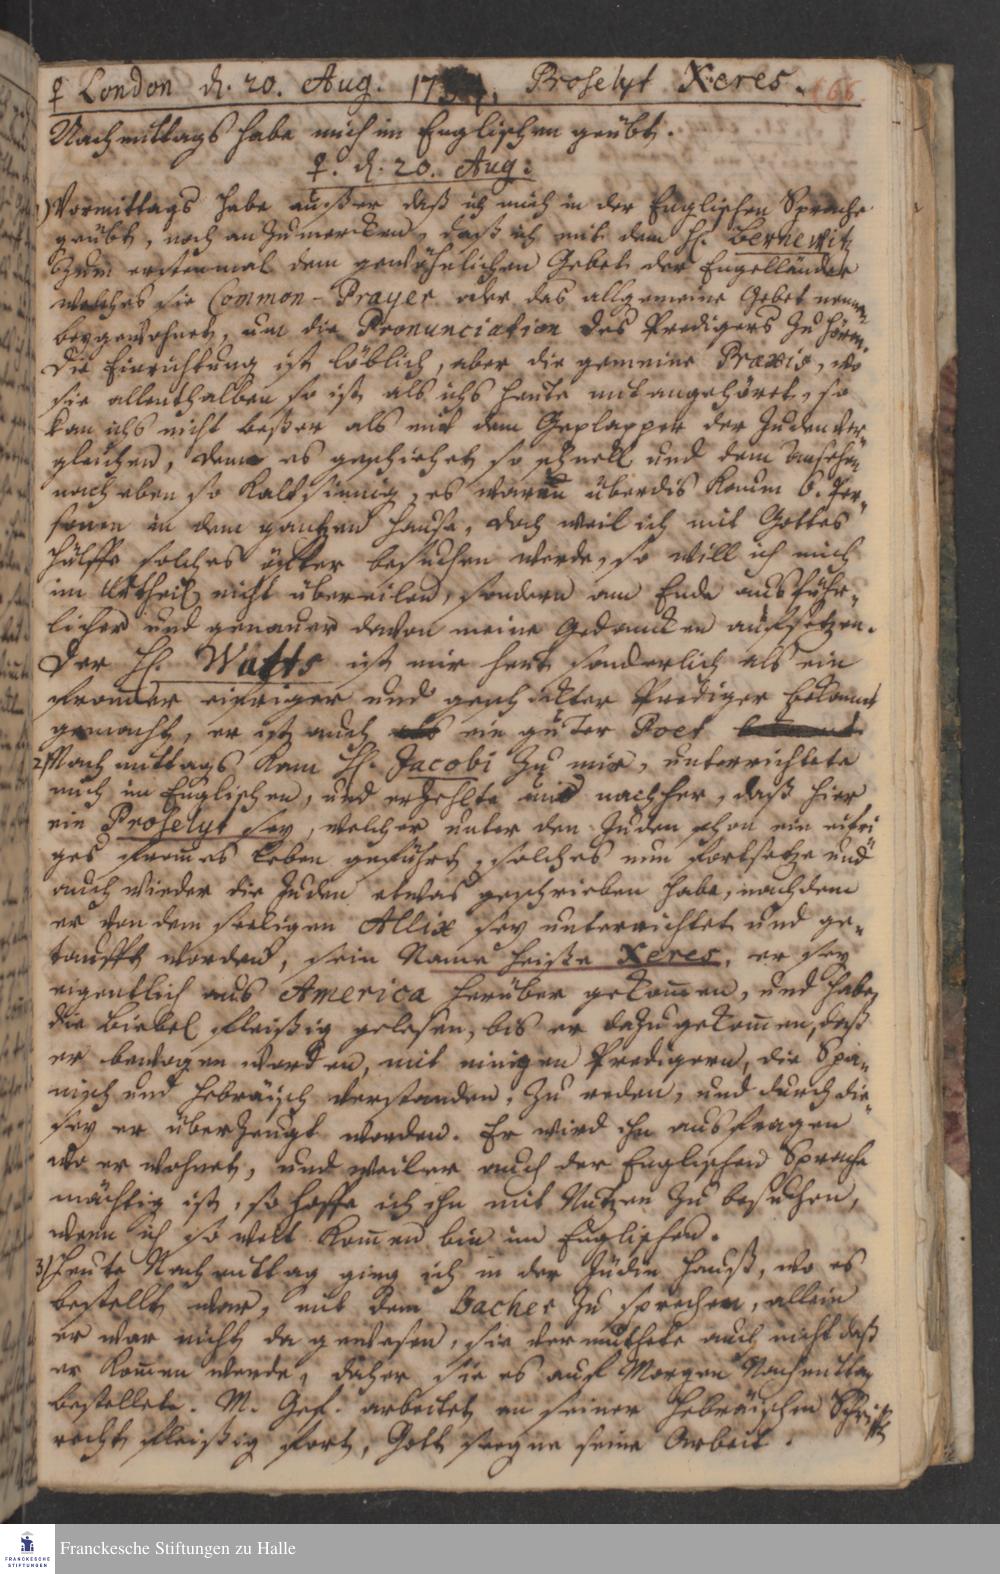 ♀ London d. 20. Aug. 17 Proselyt Xeres.
Nachmittags habe mich im Englischen geübt.
♀. d. 20. Aug:
1) Vormittags habe außer daß ich mich in der Englischen Sprache
geübt, noch an zu mercken, daß ich mit dem H. Bernewitz
zum erstenmal dem gewöhnlichen Gebet der Engelländer
welches sie Common-Prayer oder das allgemeine Gebet nennen
beygewohnet, um die Pronunciation des Predigers zu hören.
Die Einrichtung ist löblich, aber die gemeine Praxis, wo
sie allenthalben so ist, als ichs heute mit angehöret, so
kan ichs nicht beßer als mit dem Geplapper der Juden ver-
gleichen, denn es geschiehet so schnell und dem Ansehen
nach eben so kaltsinnig, es waren überdis kaum 6. Per-
sonen in dem gantzen Hause, doch weil ich mit Gottes
Hülffe solches öffter besuchen werde, so will ich mich
im Urtheil nicht übereilen, sondern am Ende ausführ-
licher und genauer davon meine Gedancken aufsetzen.
Der H. Watts ist mir heut sonderlich als ein
frommer eifriger und geschickter Prediger bekannt
gemacht, er ist auch ein guter Poet
2) Nachmittags kam H. Jacobi zu mir, unterrichtete
mich im Englischen, und erzehlte mir nachher, daß hier
ein Proselyt sey, welcher unter den Juden schon ein eifri-
ges frommes Leben geführt, solches nun fortsetze und
auch wieder die Juden etwas geschrieben habe, nachdem
er von dem seeligen Allix sey unterrichtet und ge-
taufft worden, sein Name heiße Xeres, er sey
eigentlich aus America herüber gekommen, und habe
die Biebel fleißig gelesen, bis er dazu gekommen, daß
er bewogen worden, mit einigen Predigern, die Spa-
nisch und Hebräisch verstanden, zu reden, und durch die-
sey er überzeugt worden. Er wird ihn ausfragen
wo er wohnet, und weil er auch der Englischen Sprache
mächtig ist, so hoffe ich ihn mit Nutzen zu besuchen,
wenn ich so weit kommen bin im Englischen.
3) Heute Nachmittag ging ich in der Jüdin Hauß, wo es
bestellt war, mit dem Bacher zu sprechen, allein
er war nicht da gewesen, sie vermuthete auch nicht daß
er kommen werde, daher sie es auf Morgen Nachmittag
bestellete. M. Gef. arbeitet an seiner Hebräischen Schrifft
recht fleißig fort, Gott seegne seine Arbeit.
Franckesche Stiftungen zu Halle
FRANCKESCHE
STIFTUNGEN